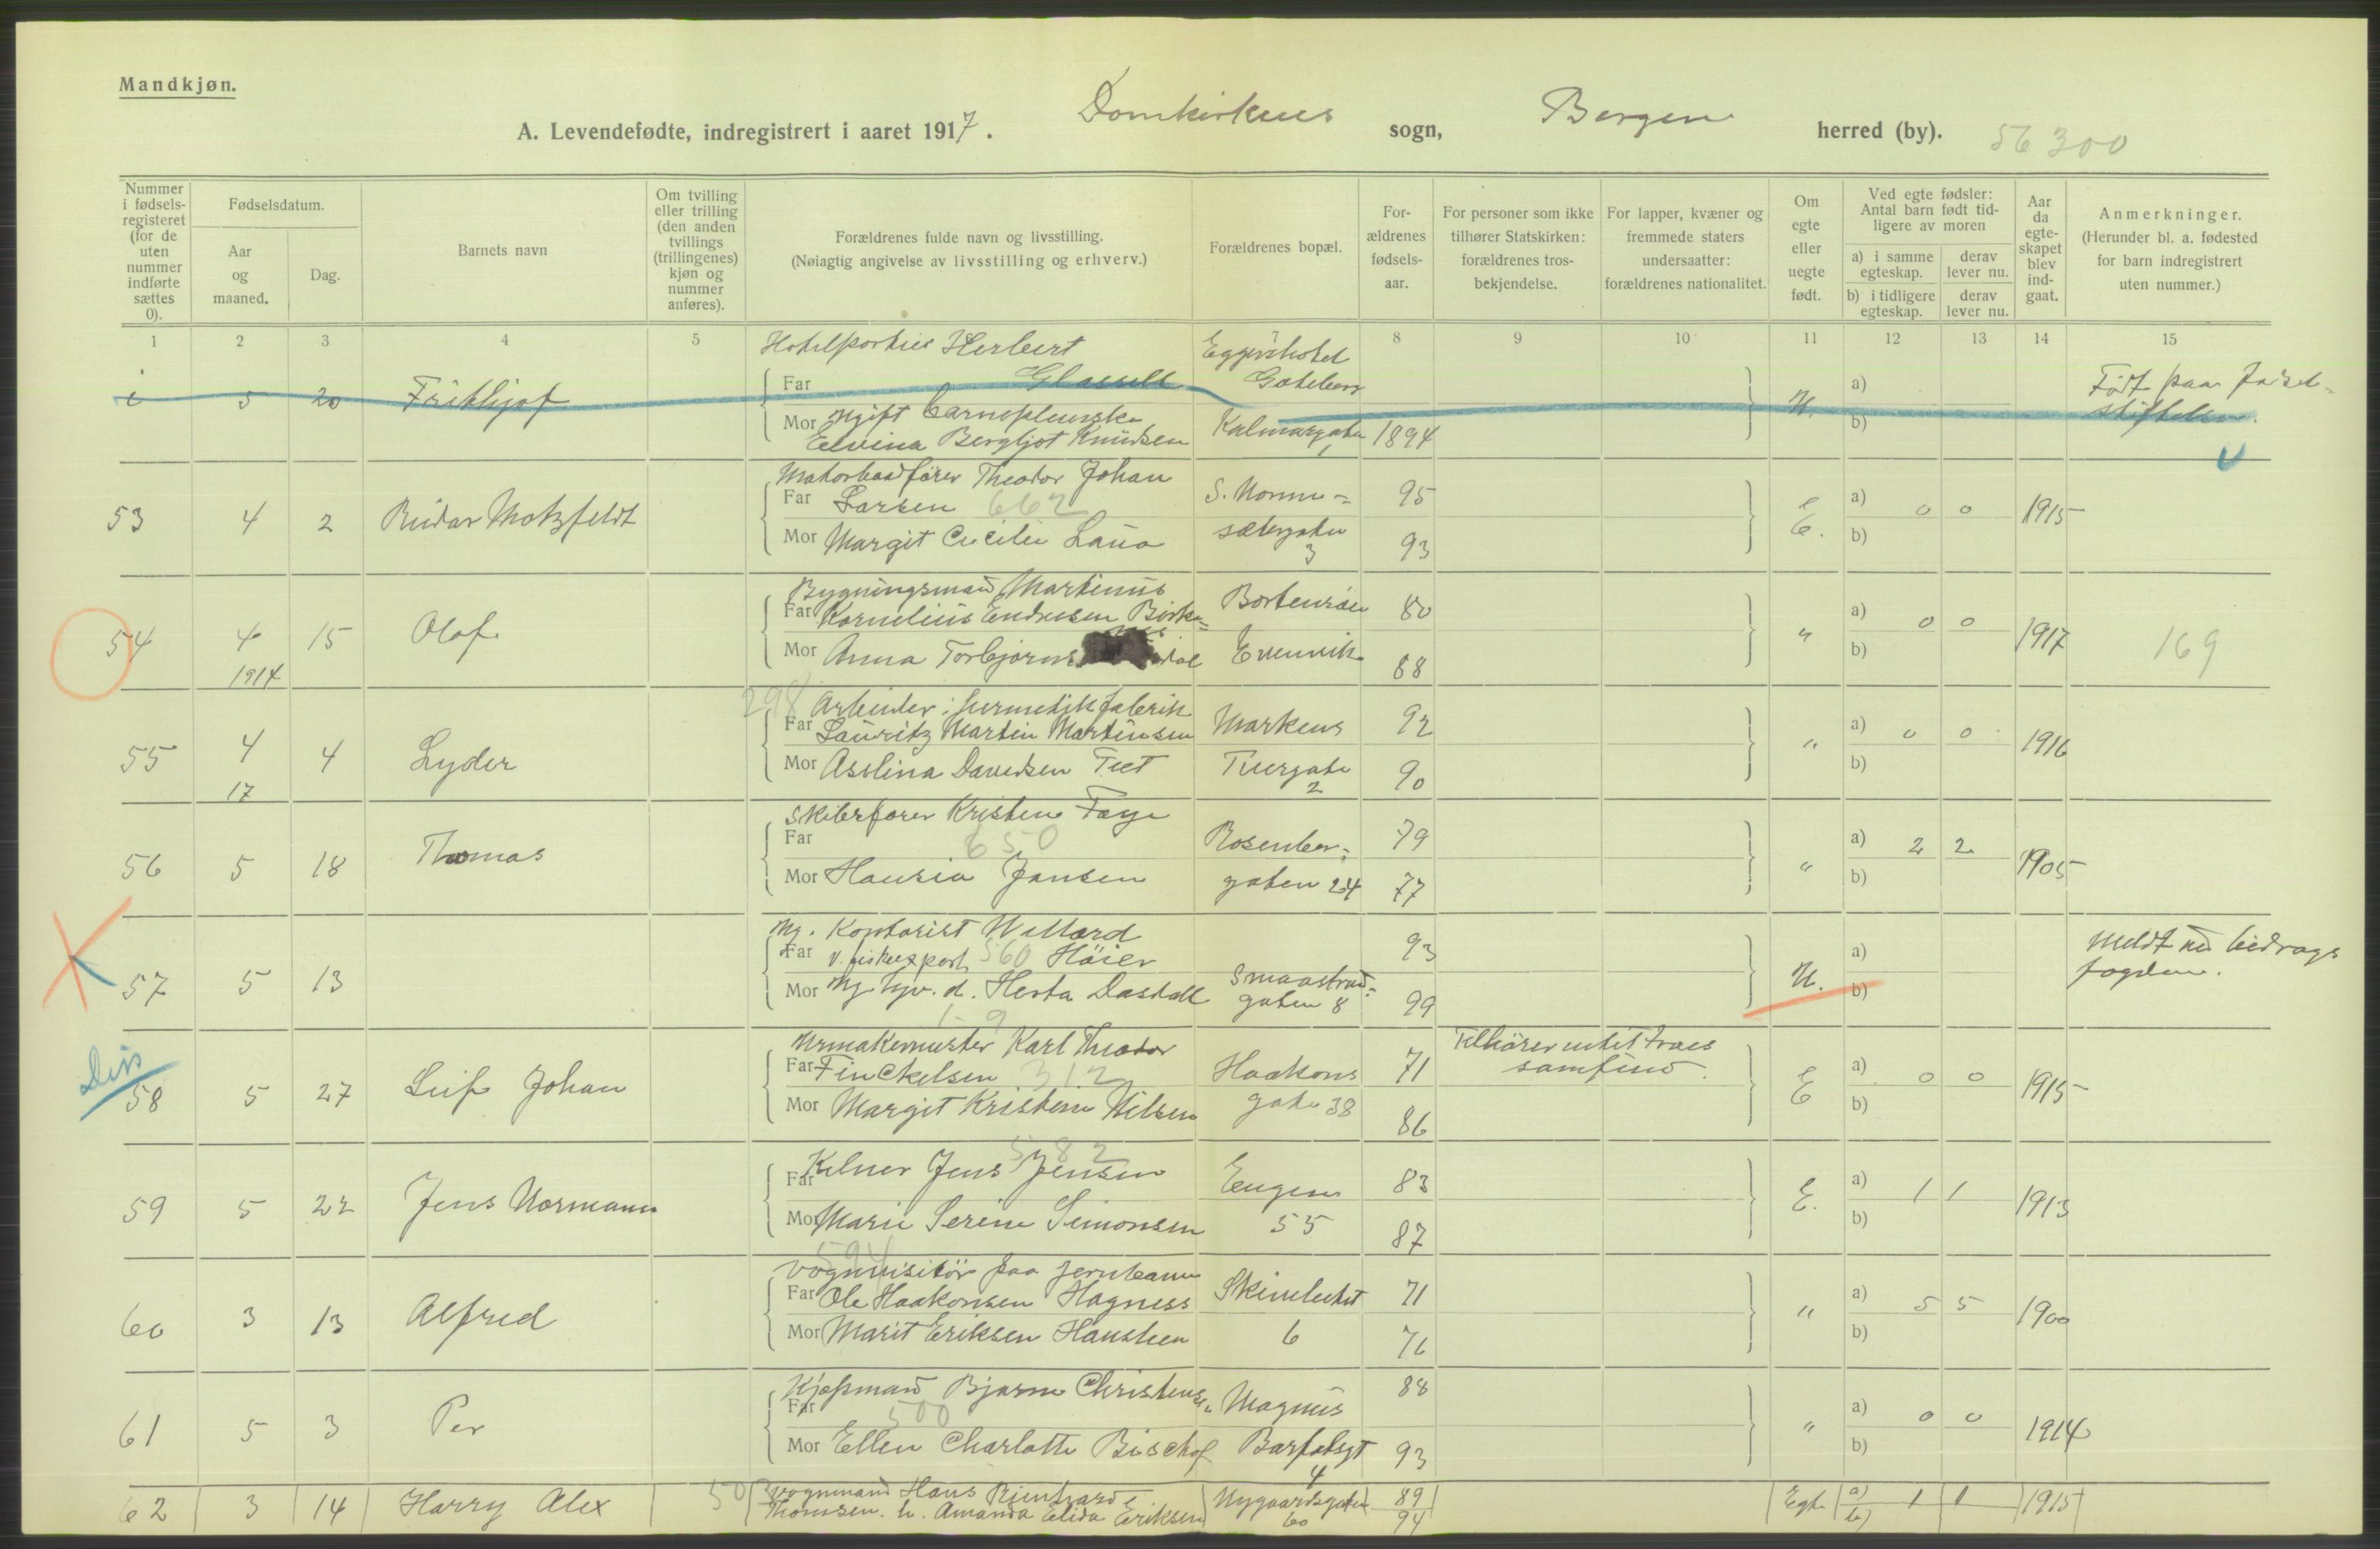 Mandkjøn.
A. Levendefødte, indregistrert i aaret 1917. Domkirkens sogn, Bergen herred (by). 56300
Nummer i fødsels-registeret (for de uten nummer indførte sættes 0).
Fødselsdatum.
Aar og maaned.
Dag.
Barnets navn
Om tvilling eller trilling (den anden tvillings (trillingenes) kjøn og nummer anføres).
Forældrenes fulde navn og livsstilling.
(Nøiagtig angivelse av livsstilling og erhverv.)
Forældrenes bopæl.
For-ældrenes fødsels-aar.
For personer som ikke tilhører Statskirken: forældrenes tros-bekjendelse.
For lapper, kvæner og fremmede staters undersaatter: forældrenes nationalitet.
Om egte eller uegte født.
Ved egte fødsler: Antal barn født tid-ligere av moren
a) i samme egteskap. derav lever nu.
b) i tidligere egteskap. derav lever nu.
Aar da egte-skapet blev ind-gaat.
Anmerkninger.
(Herunder bl. a. fødested for barn indregistrert uten nummer.)
1 2 3 4 5 7 8 9 10 11 12 13 14 15
Hotelportier Herbert
5 20 Frithjof Far Glasell Gøteborg U. a) Født paa fødsels-
Mor Ugift
Elvina Bergljot Knudsen Kalmargaten 1 1894 b) stiftelsen.
Motorbaadfører Theodor Johan
53 4 2 Reidar Motzfeldt Far Larsen 662 S. Monne- 95 E. a) 0 0 1915
Mor Margit Cecilie Lava sætergaten 3 93 b)
Bygningsmand Martinius
54 4 1914 15 Olaf Far Kornelius Endresen Birke- 80 " a) 0 0 1917 169
Mor Anna Evenvik 88 b)
298 Arbeider i hermetikfabrik
55 4 17 4 Lyder Far Lauritz Martin Martinsen Markens 92 " a) 0 0 1916
Mor Asslina Davidsen Teet 2 90 b)
Skibsfører Kristen Faye
56 5 18 Thomas Far 650 Rosenber- 79 " a) 2 2 1905
Mor Hansia Jansen gaten 24 77 b)
Ug. Kontorist Willard
57 5 13 Far v. fiskeexport 560 Høier 93 U. a) Meldt til bidrags
Mor Ug. Herta Dastøll Smaastrand-gaten 8 99 b) fogden.
Diss
Urmakermester Karl Theodor
58 5 27 Leif Johan Far Finckelsen 312 Haakons 71 Tilhører intet tros samfund. E a) 0 0 1915
Mor Margit Kristine Nilsen gate 38 86 b)
582
59 5 22 Jens Normann Far Kelner Jens Jensen Eugens 83 E. a) 1 1 1913
Mor Marie Serine Simonsen 55 87 b)
594
Vognvisitør paa Jernbanen
60 3 13 Alfred Far Ole Haakonsen Hagness Skivebaket 71 " a) 5 5 1900
Mor Marit Eriksen Hansteen 6 76 b)
Kjøpmand Bjarne Christensen
61 5 3 Per Far 500 Magnus 88 " a) 0 0 1914
Mor Ellen Charlotte Bischof Barfotsgt 4 93 b)
62 3 14 Harry Alex 503 Vognmand Hans Reinhard Nygaardsgaten 60 89 Egte a) 1 1 1915
Thomsen. h. Amanda Elida Eriksen 94 b)